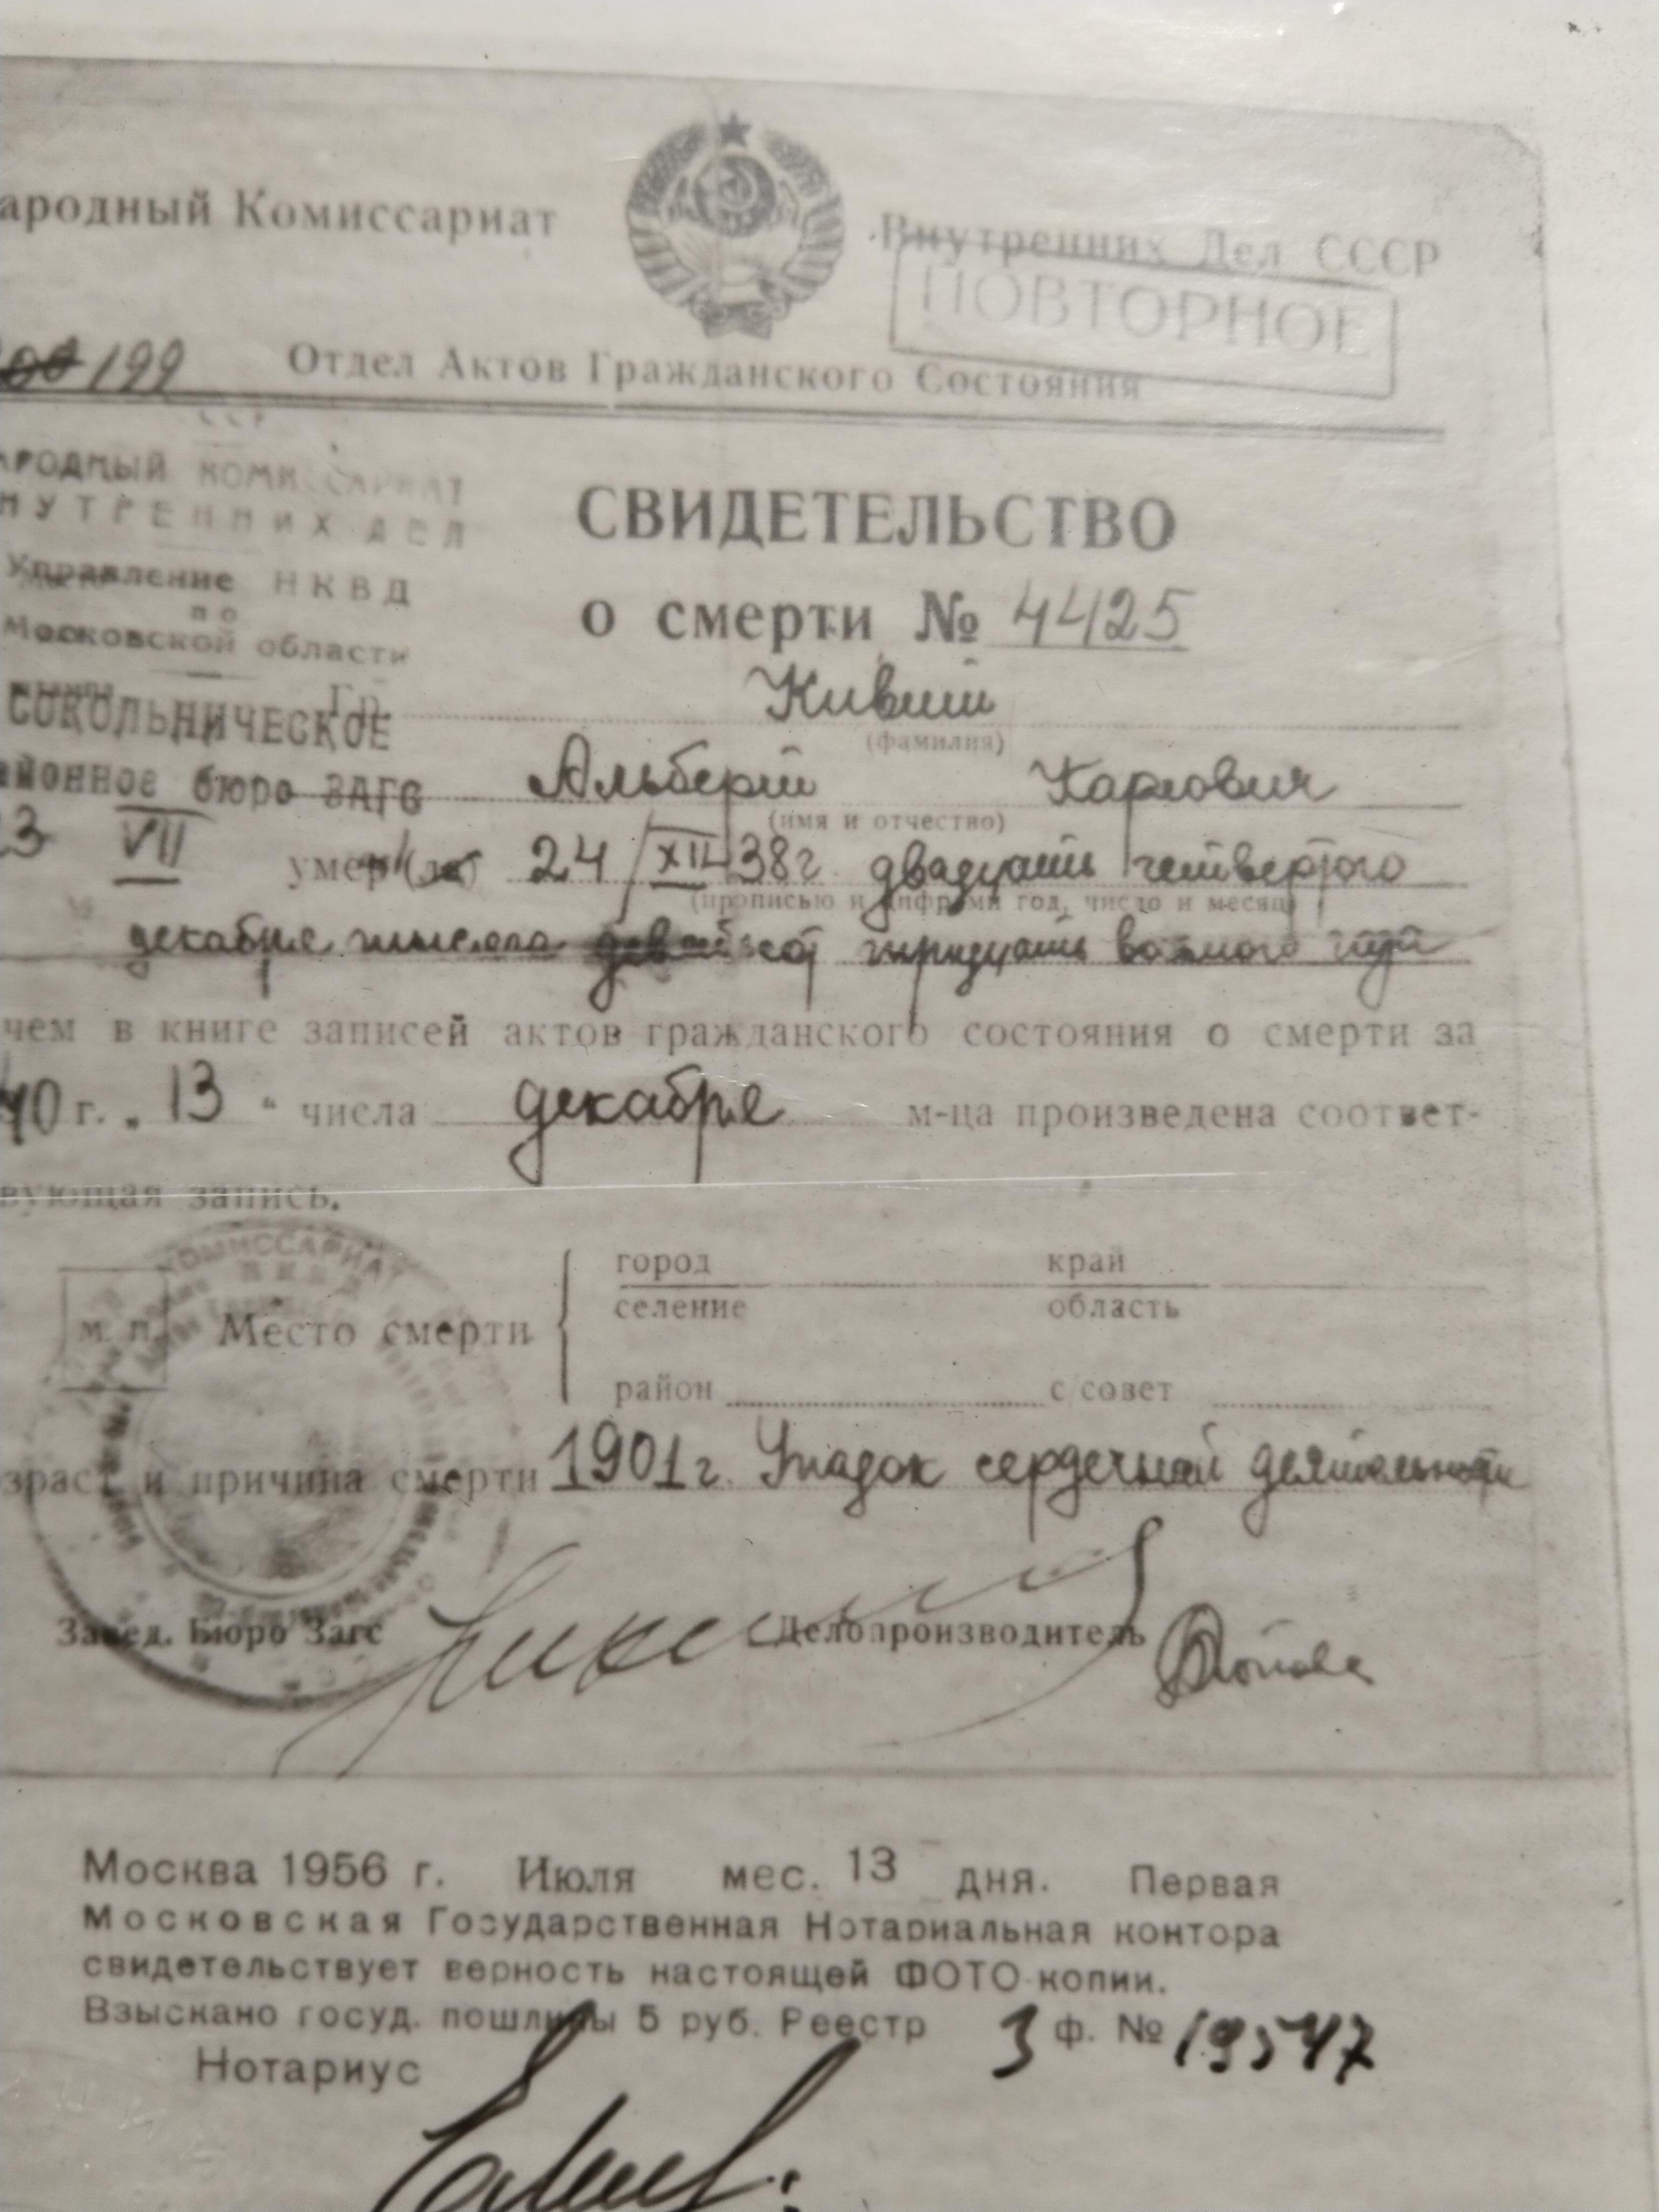 ародный Комиссариат Внутренних Дел СССР
ПОВТОРНОЕ
199 Отдел Актов Гражданского Состояния
ССР
АРОДНЫЙ КОМИССАРИАТ
НУТРЕННИХ ДЕЛ
Управление НКВД
по
Московской области
СОКОЛЬНИЧЕСКОЕ
айонное бюро ЗАГС
23 VII
СВИДЕТЕЛЬСТВО
о смерти № 4425
Гр. Кивит
(фамилия)
Альберт Карлович
(имя и отчество)
умер (ла) 24/XII 38г двадцать четвертого
(прописью и цифрами год, число и месяц)
декабря тысяча девятьсот тридцать восьмого года
чем в книге записей актов гражданского состояния о смерти за
40 г. „ 13 “ числа декабря м-ца произведена соответ-
вующая запись.
М. П.
Место смерти
город край
селение область
район с совет
зраст и причина смерти 1901 г. Упадок сердечной деятельности
Завед. Бюро Загс Делопроизводитель
Москва 1956 г. Июля мес. 13 дня. Первая
Московская Государственная Нотариальная контора
свидетельствует верность настоящей ФОТО-копии.
Взыскано госуд. пошлины 5 руб. Реестр 3 ф. № 19547
Нотариус